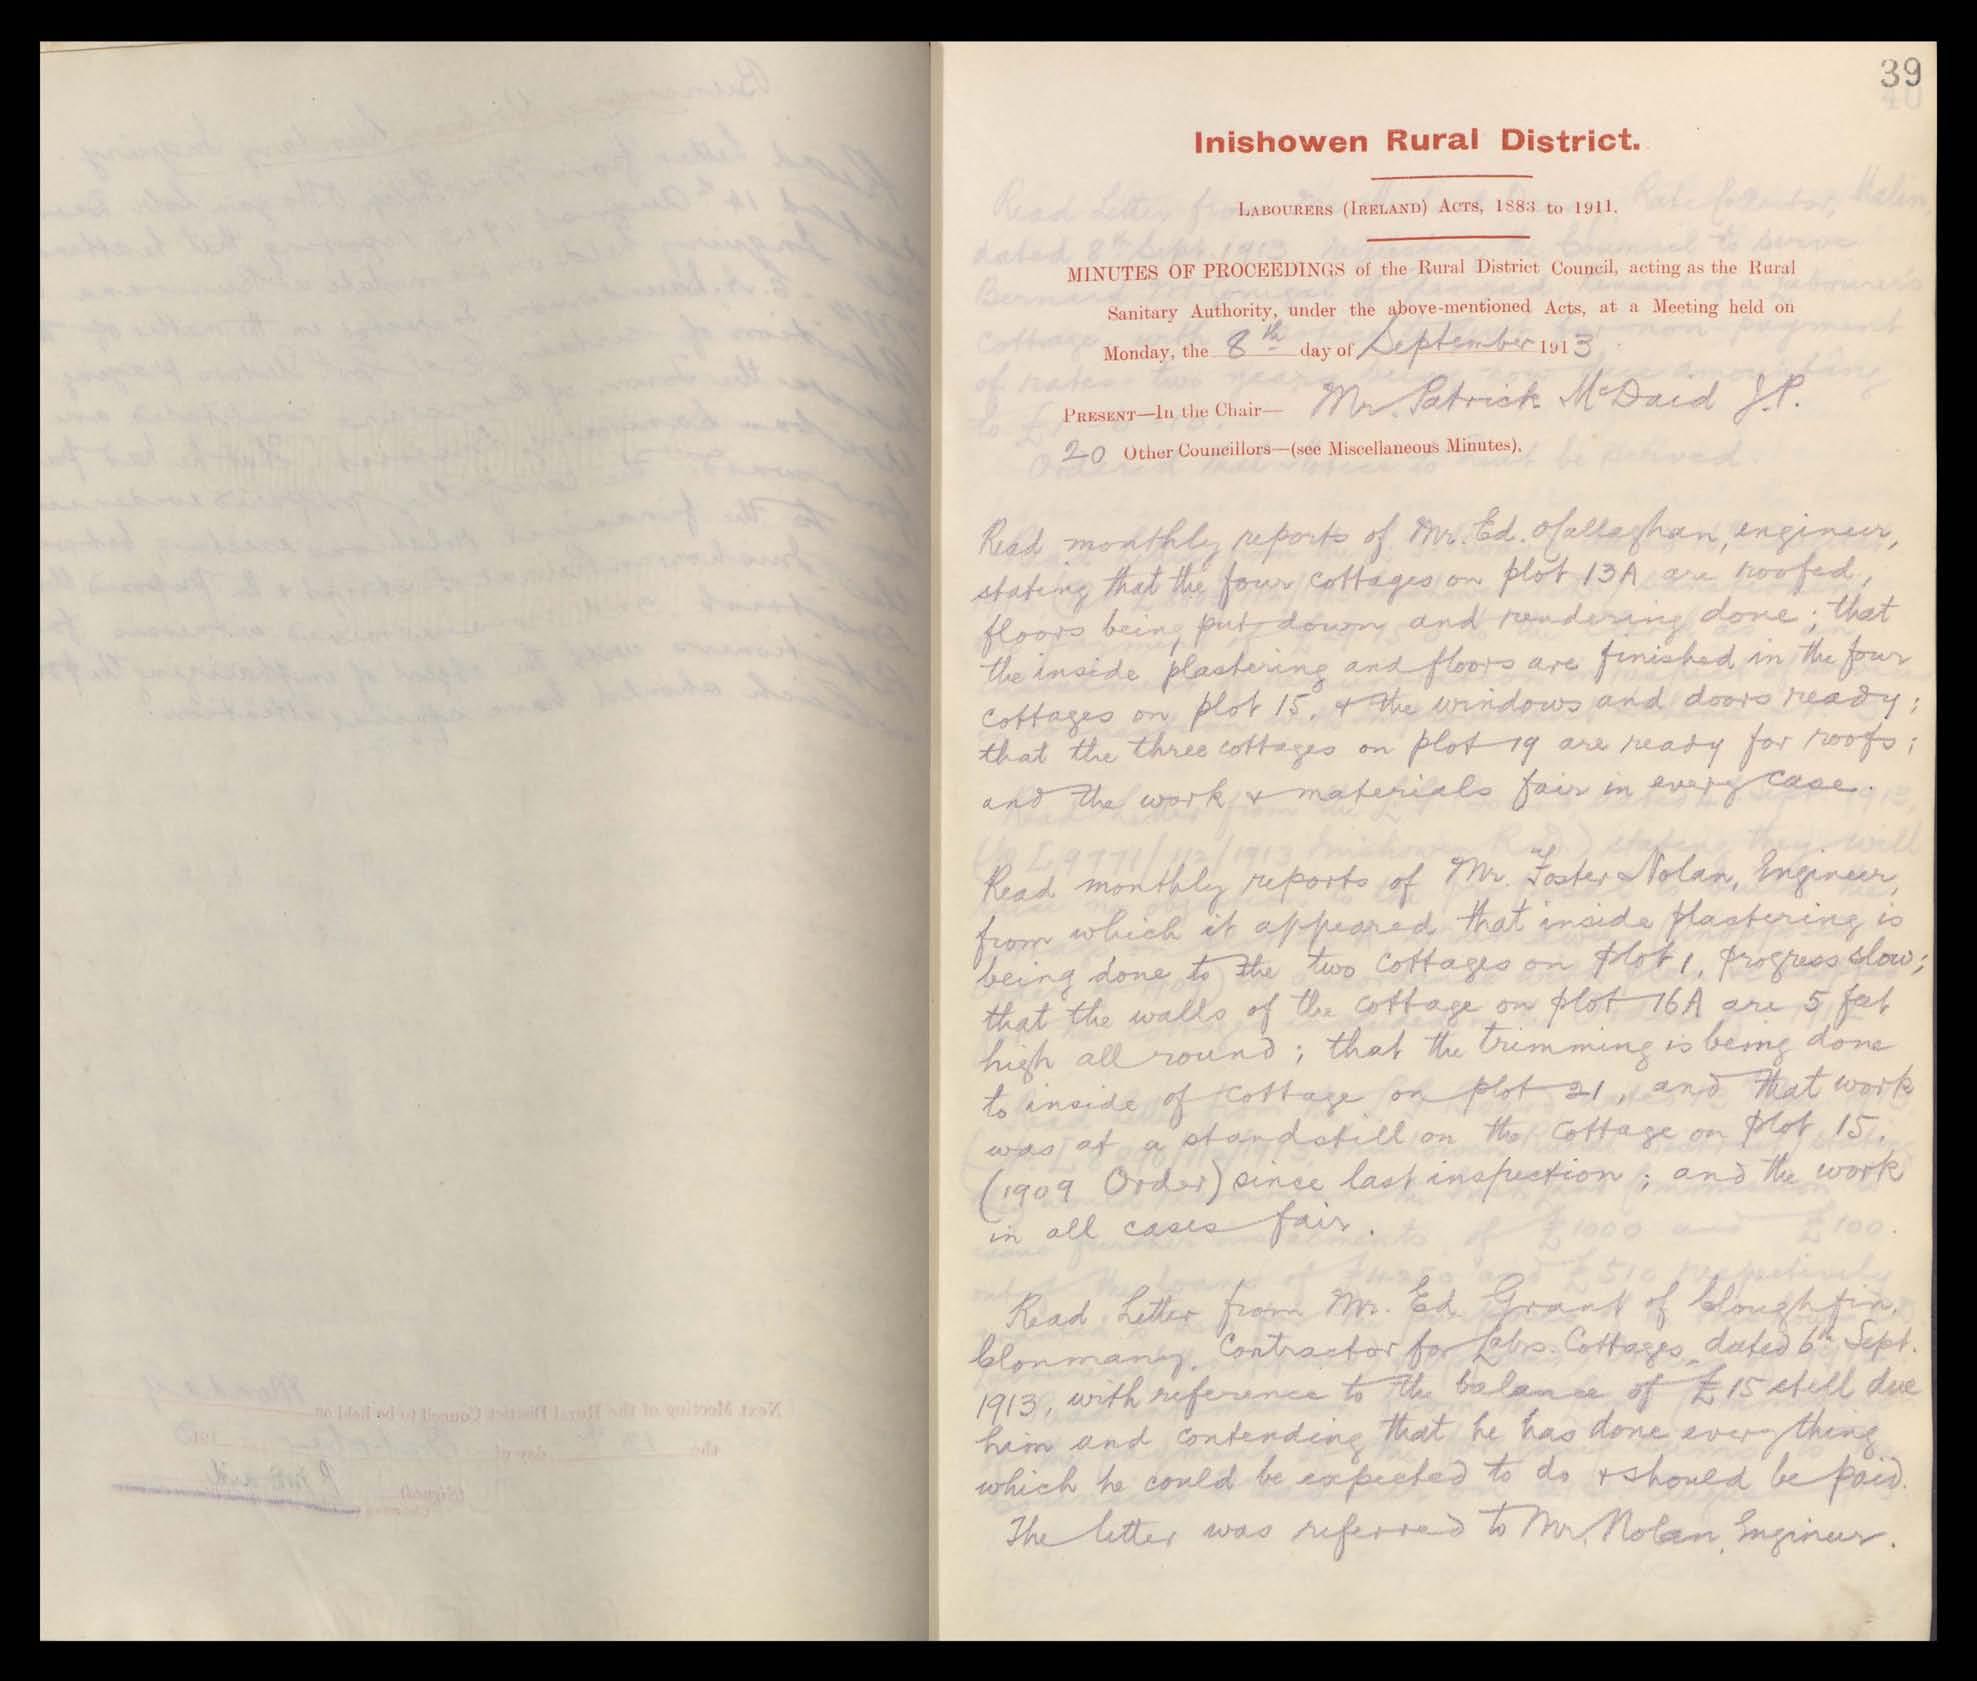 39
Inishowen Rural District.
LABOURERS (IRELAND) ACTS, 1883 to 1911.
MINUTES OF PROCEEDINGS of the Rural District Council, acting as the Rural
Sanitary Authority, under the above-mentioned Acts, at a Meeting held on
Monday, the 8th day of September 1913
PRESENT—In the Chair— Mr. Patrick McDaid J.P.
20 Other Councillors—(see Miscellaneous Minutes).
Read monthly reports of Mr. Ed. O'Callaghan, engineer,
stating that the four cottages on plot 13A are roofed,
floors being put down and rendering done; that
the inside plastering and floors are finished in the four
cottages on plot 15, & the windows and doors ready;
that the three cottages on plot 19 are ready for roofs;
and the work & materials fair in every case.
Read monthly reports of Mr. Foster Nolan, Engineer,
from which it appeared that inside plastering is
being done to the two cottages on plot 1, progress slow;
that the walls of the cottage on plot 16A are 5 feet
high all round; that the trimming is being done
to inside of cottage on plot 21, and that work
was at a standstill on the cottage on plot 15,
(1909 Order) since last inspection; and the work
in all cases fair.
Read Letter from Mr. Ed. Grant of Cloughfin,
Clonmany, Contractor for Labrs. Cottages, dated 6th Sept.
1913, with reference to the balance of £15 still due
him and contending that he has done everything
which he could be expected to do & should be paid.
The letter was referred to Mr. Nolan, Engineer.